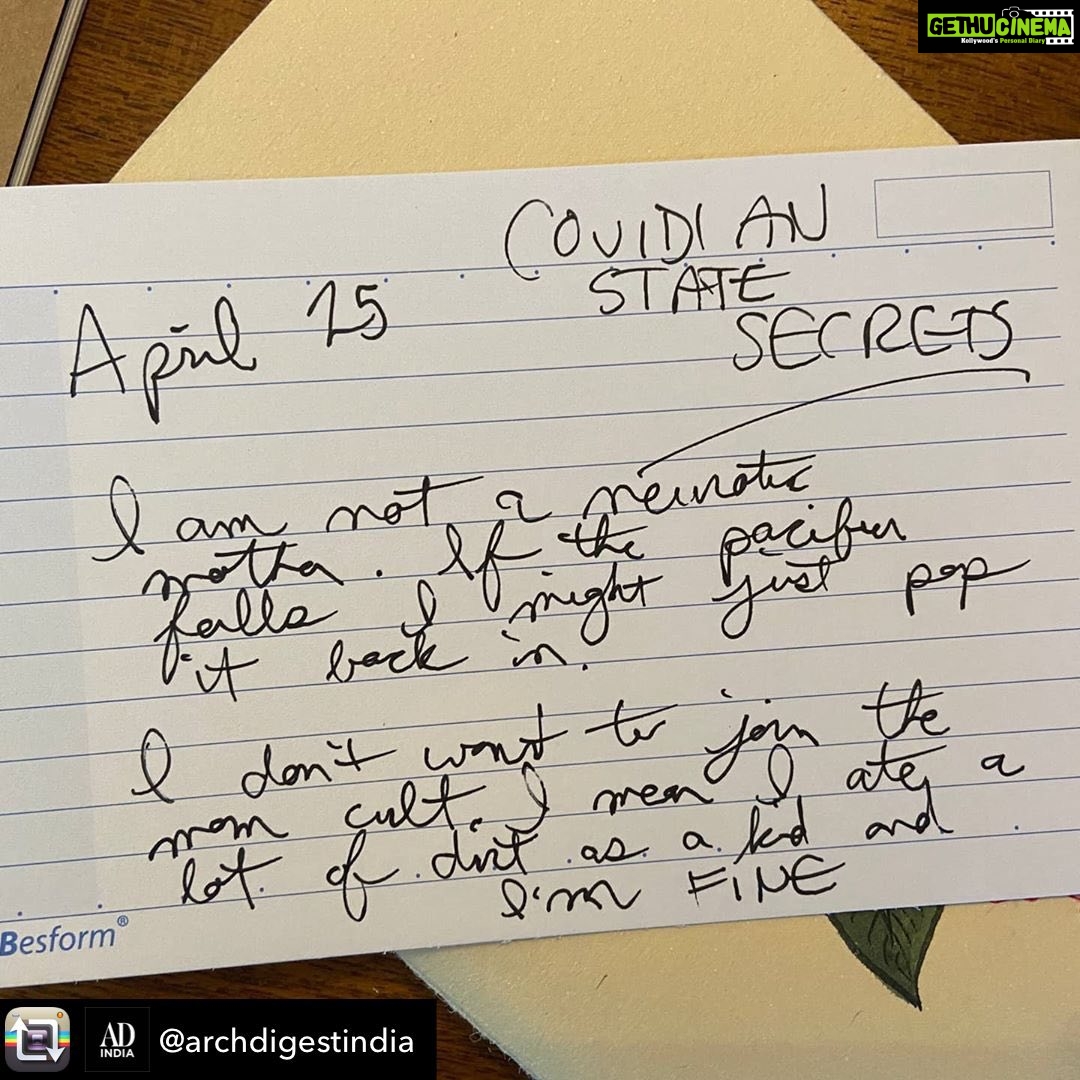 GETHUCINEMA
Kollywood's Personal Diary
COVIDIAN
STATE
SECRETS
April 25
I am not a neurotic
mother. If the pacifier
falls I might just pop
it back in.
I don't want to join the
mom cult. I mean I ate a
lot of dirt as a kid and
I'm FINE
Besform®
AD
INDIA
@archdigestindia